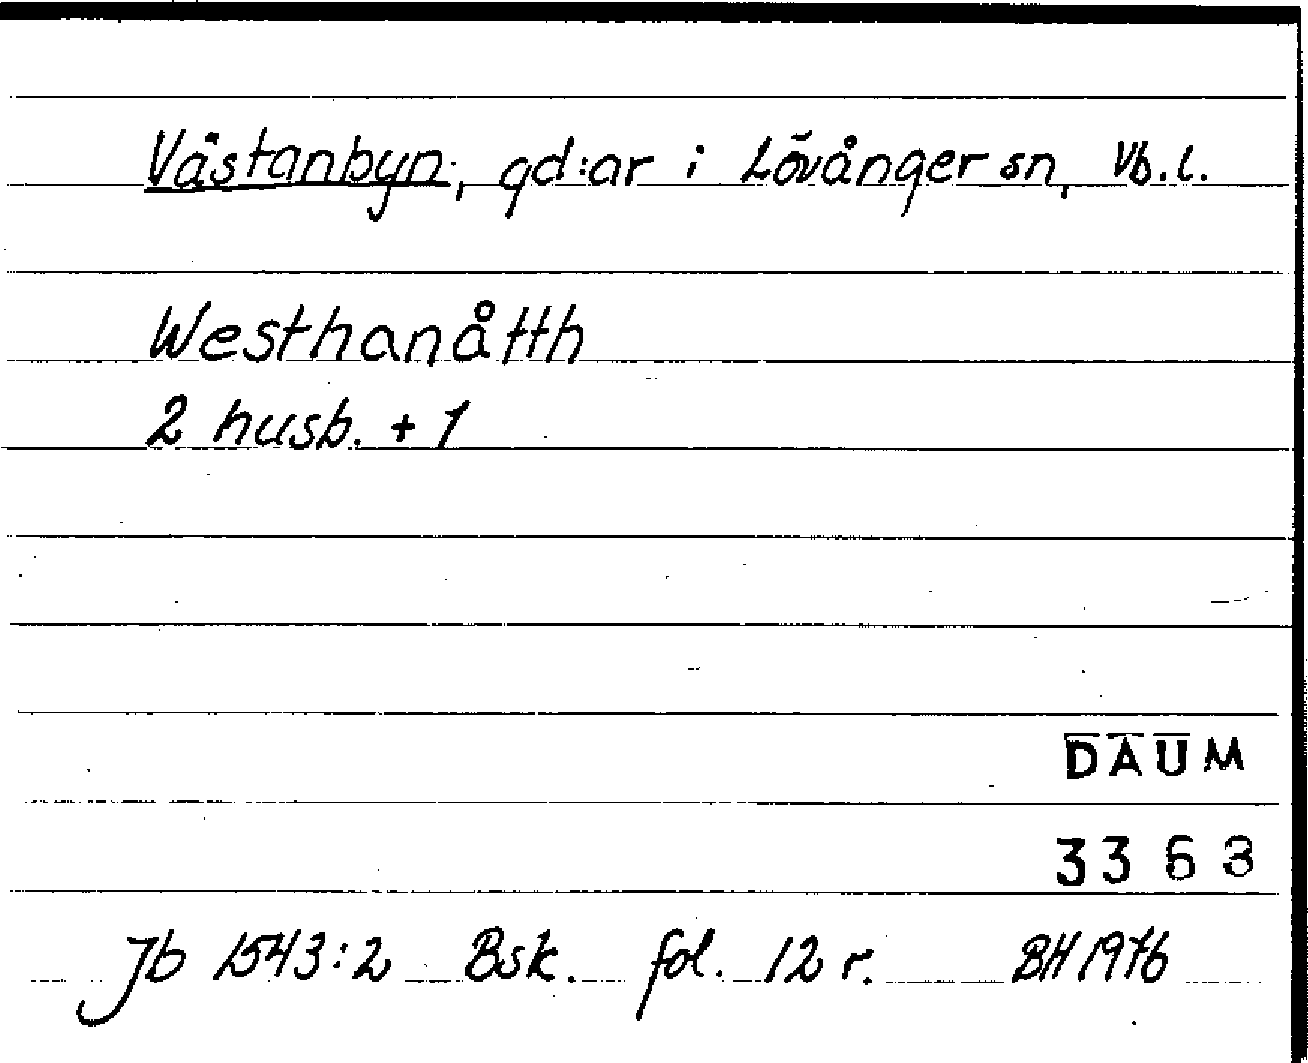 Västanbyn, gd:ar i Lövånger sn, Vb.l.
Westhanåtth
2 husb. + 1
DAUM
3363
Jb 1543:2 Bsk. fol. 12 r. BH 1976